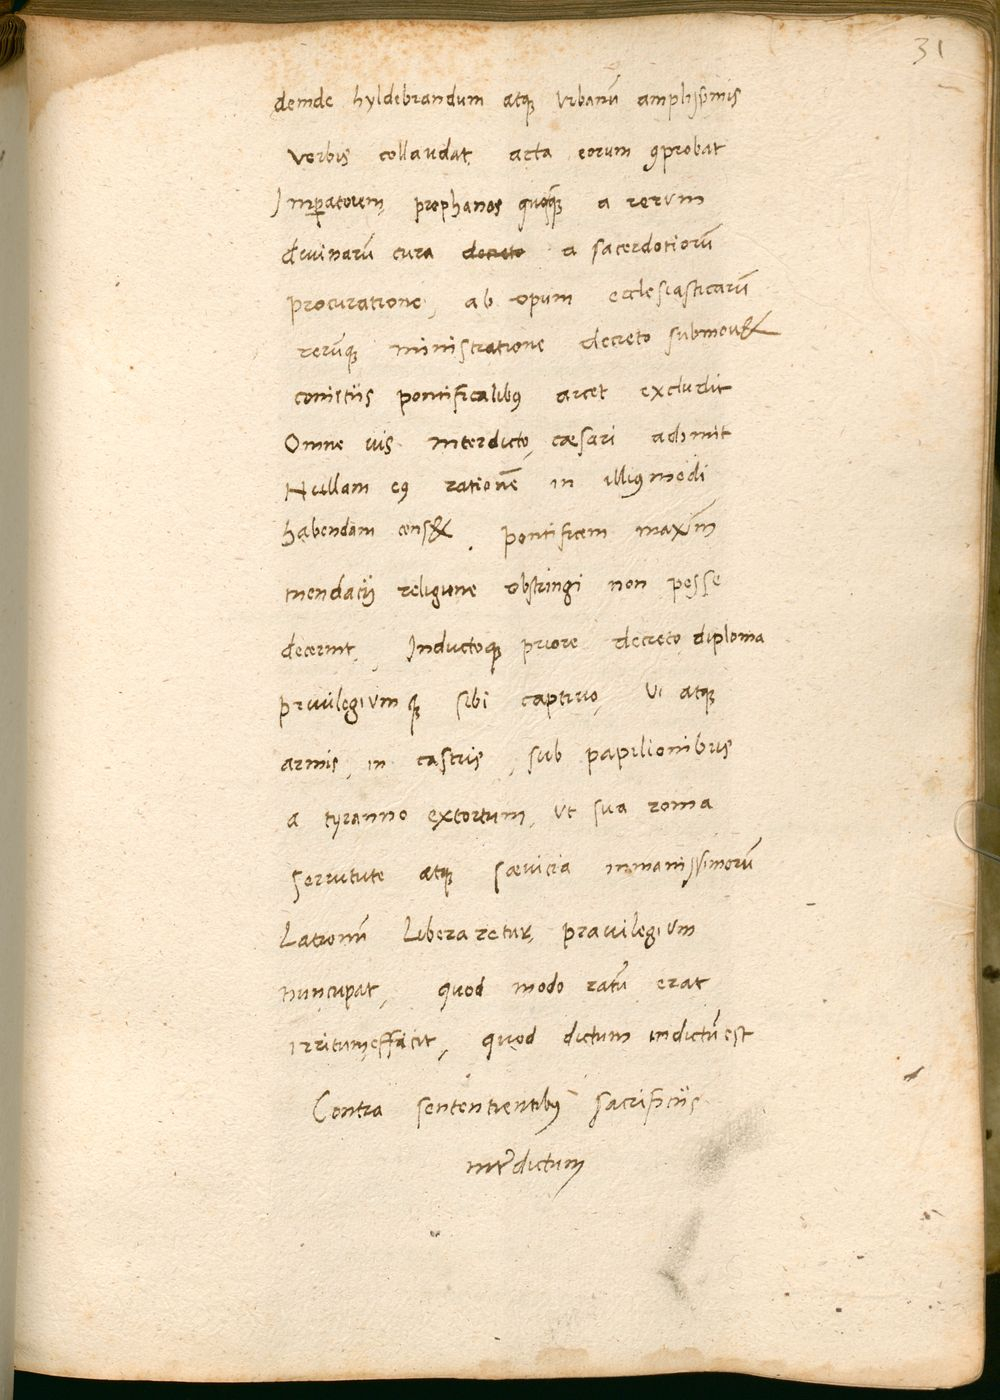 31
deinde hyldebrandum atq; Vrbanū amplissimis
verbis collaudat, acta eorum ꝯprobat
Imꝑatorem, prophanos quoq; a rerum
diuinarū cura decreto a sacerdotiorū
procuratione, ab opum ecclesiasticarū
rerūq; ministratione decreto submou&
comitiis pontificalibꝰ arcet excludit
Omne ius interdicto, cæsari adimit
Nullam eꝰ rationē in illiꝰmodi
habendam cens&. pontificem maxīm
mendacij religione obstringi non posse
decernit, Inductoq; priore decreto, diploma
priuilegiumq; sibi captiuo, vi atq;
armis, in castris, sub papilionibus
a tyranno extortum, vt sua roma
seruitute atq; sæuicia inmanissimorū
Latronū Liberaretur, prauilegium
nuncupat, quod modo ratū erat
irritum efficit, quod dictum indictū est
Contra sententientibꝰ sacrificijs
interdictum